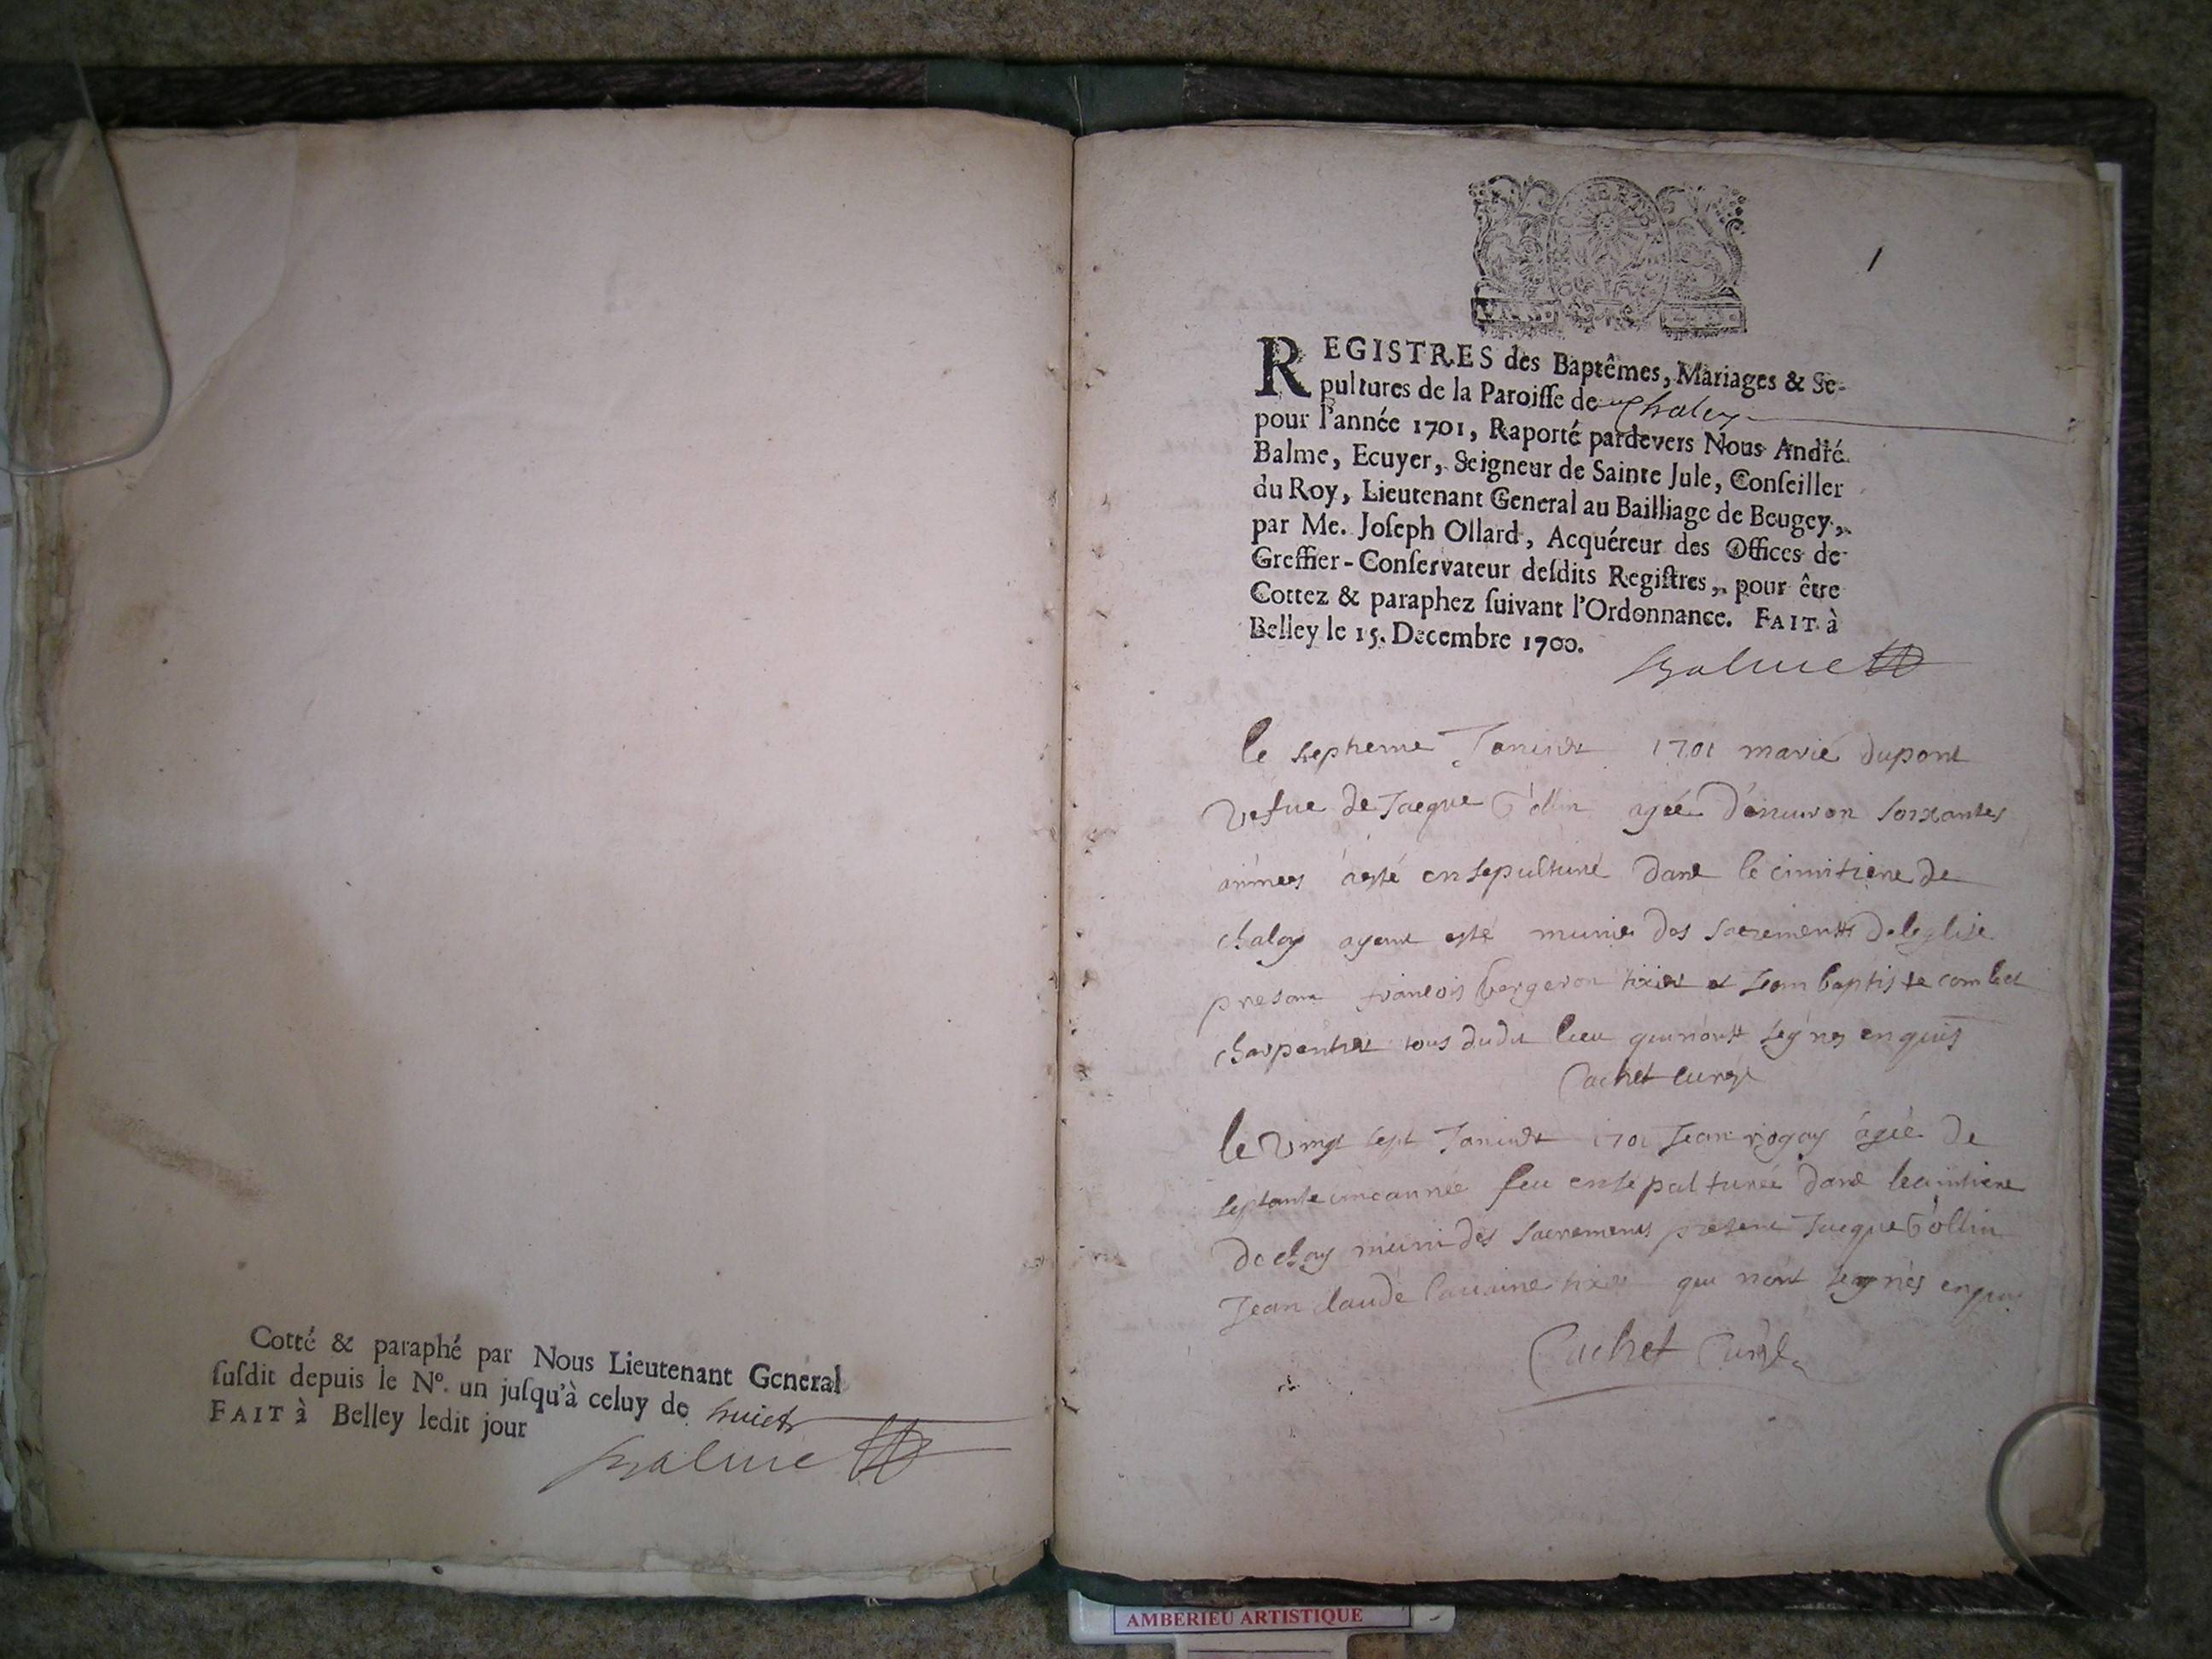 Cotté & paraphé par Nous Lieutenant General
ſuſdit depuis le Nº. un juſqu'à celuy de huict
FAIT à Belley ledit jour
Balme
1
REGISTRES des Baptêmes, Mariages & Se-
pultures de la Paroiſſe de Chaley
pour l'année 1701, Raporté pardevers Nous André
Balme, Ecuyer, Seigneur de Sainte Jule, Conſeiller
du Roy, Lieutenant General au Bailliage de Beugey,
par Me. Joſeph Ollard, Acquéreur des Offices de
Greffier-Conſervateur deſdits Regiſtres, pour être
Cottez & paraphez ſuivant l'Ordonnance. FAIT à
Belley le 15. Decembre 1700.
Balme
le septieme Janvier 1701 marie dupont
vefue de Jacque Gollin agée d'enuiron soixantes
années a esté ensepulturé dans le cimitiere de
chaley ayant esté munie des sacrements de leglise
present francois bergeron tixier et Jean baptiste combet
charpentier tous dudit lieu qui nont segnes enquis
Cachet curé
le vingt sept Janvier 1701 Jean rogay agée de
septante cinc année feu ensepulturée dans le cimitiere
de chay muni des sacrements present Jacque Gollin
Jean claude tixier qui nont segnes enquis
Cachet Curé
AMBERIEU ARTISTIQUE